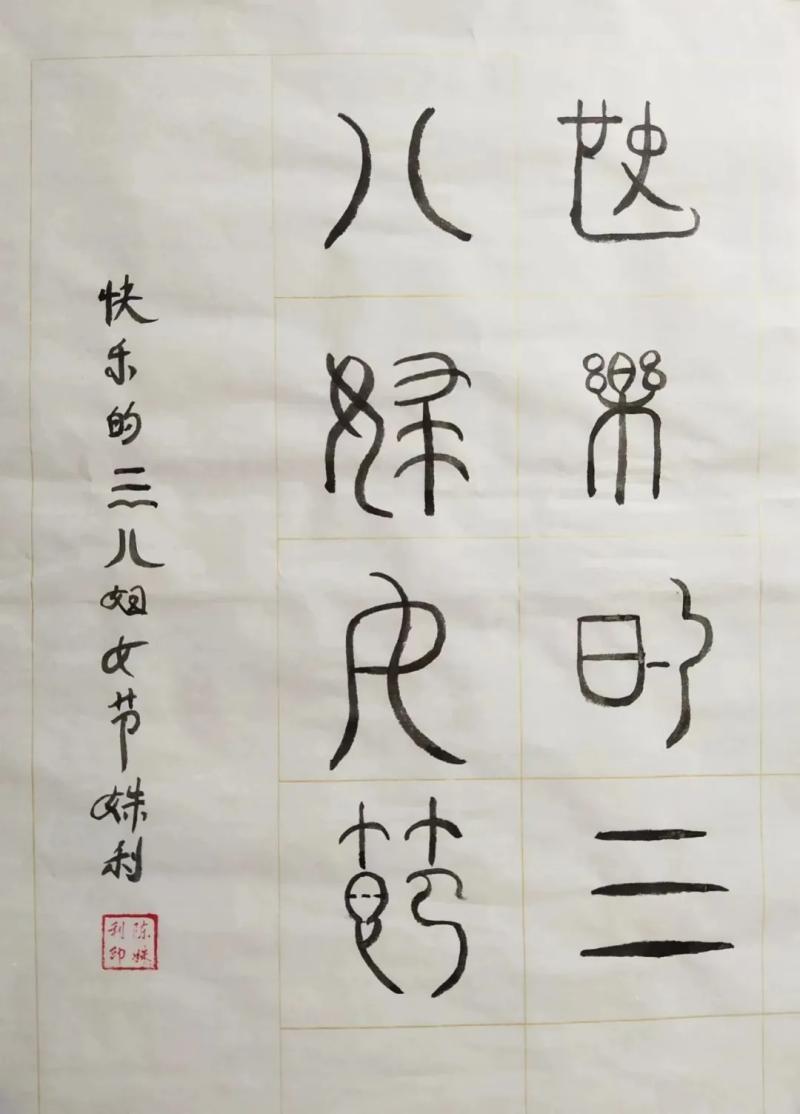 快樂的三
八婦女節
快乐的三八妇女节姝利
陈姝利印